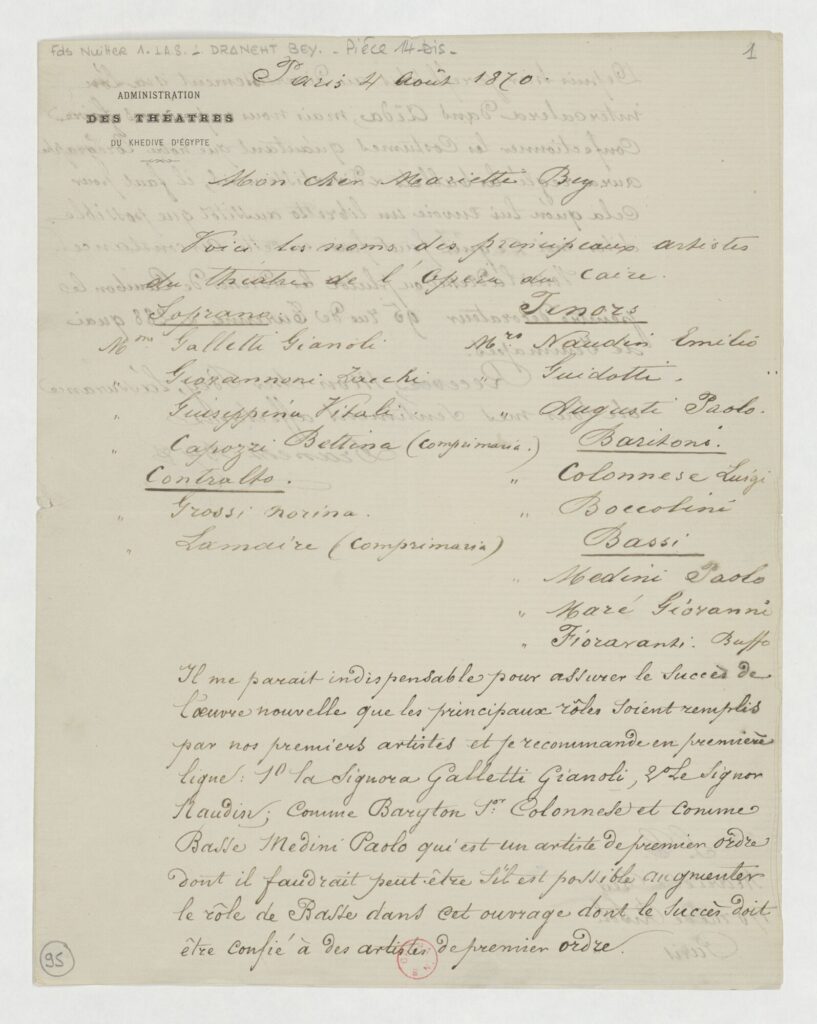 Fds Nuitter 1. LAS. DRANEHT BEY. - Pièce 14 bis -
1
Paris 4 Août 1870.
ADMINISTRATION
DES THÉATRES
DU KHEDIVE D'ÉGYPTE
Mon cher Mariette Bey
Voici les noms des principeaux artistes
du théatre de l'Opéra du Caire.
Soprano
Mme Galletti Gianoli
" Giovannoni Zacchi
" Guiseppina Vitali
" Capozzi Bettina (comprimaria.)
Contralto.
" Grossi norina.
" Lamaire (comprimaria)
Tenors
Mrs Naudin Emilio
" Guidotti.
" Augusti Paolo.
Baritoni.
" Colonnese Luigi
" Boccolini
Bassi
" Medini Paolo
" Maré Giovanni
" Fioravanti. Buffo
Il me parait indispensable pour assurer le succès de
l'œuvre nouvelle que les principaux rôles soient remplis
par nos premiers artistes et je recommande en première
ligne: 1º la Signora Galletti Gianoli, 2º Le Signor
Naudin; comme Baryton Sor Colonnese et comme
Basse Medini Paolo qui est un artiste de premier ordre
dont il faudrait peut-être s'il est possible augmenter
le rôle de Basse dans cet ouvrage dont le succès doit
être confié à des artistes de premier ordre.
95